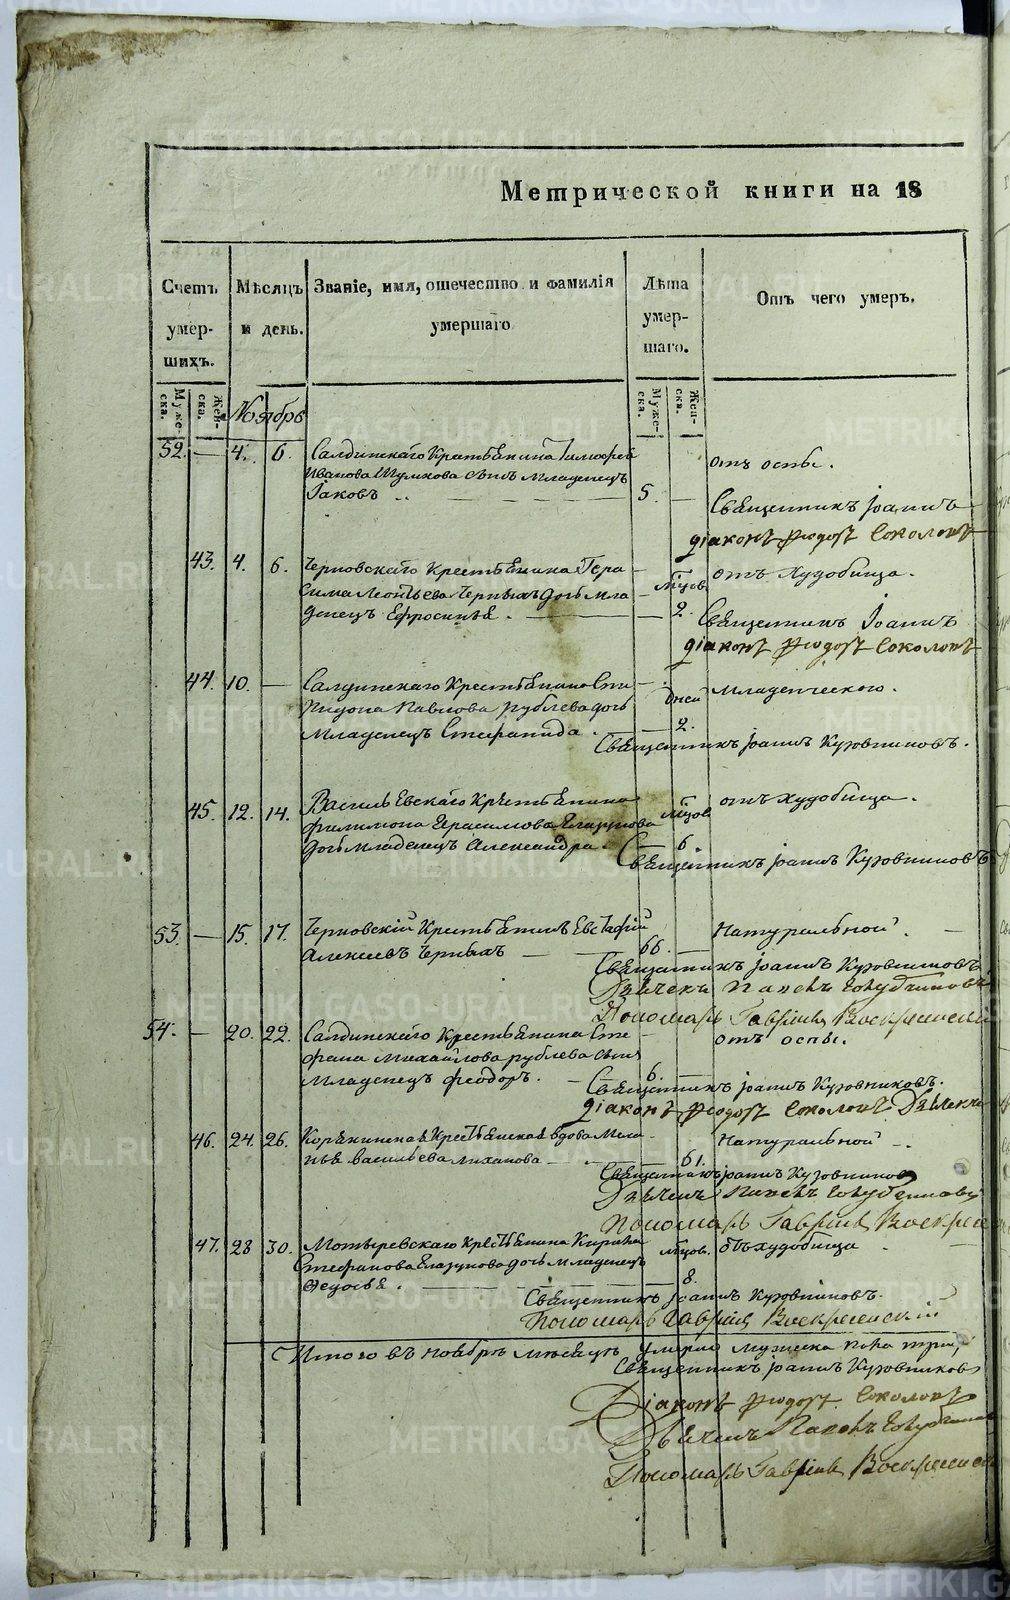 Метрической книги на 18
Счетъ умершихъ.
Мужеска.
Женска.
Мѣсяцъ и день.
Званіе, имя, отечество и фамилія умершаго
Лѣта умершаго.
Мужеска.
Женска.
Отъ чего умеръ.
Ноябрь
52. — 4. 6. Салдинскаго Крестьянина Тимофея
Иванова Шумкова сынъ младенецъ
Іаковъ 5. — отъ оспы.
Священникъ Іоаннъ
Діаконъ Ѳеодоръ Соколовъ
43. 4. 6. Черновскаго Крестьянина Гера
сима Леонтьева Черныхъ дочь мла
денецъ Ефросинья. — мѣсцов. 2. отъ худобища.
Священникъ Іоаннъ
Діаконъ Ѳеодоръ Соколовъ
44. 10. — Салдинскаго Крестьянина Спи
ридона Павлова Рублева дочь
младенецъ Стефанида. дней 2. младенческаго.
Священникъ Іоаннъ Кузовниковъ.
45. 12. 14. Васильевскаго Крестьянина
Филимона Герасимова Елгунова
дочь младенецъ Александра. мѣсцов. 6 отъ худобища.
Священникъ Іоаннъ Кузовниковъ
53. — 15. 17. Черновскій Крестьянинъ Евстафій
Алексеевъ Черныхъ — 66. — Натуральной.
Священникъ Іоаннъ Кузовниковъ
Дьячекъ
Пономарь Гавріилъ Воскресенскій
54. — 20. 22. Салдинскаго Крестьянина Сте
фана Михайлова Рублева сынъ
младенецъ Феодоръ. — 6. — отъ оспы.
Священникъ Іоаннъ Кузовниковъ.
Діаконъ Ѳеодоръ Соколовъ Дьячекъ
46. 24. 26. Крестьянская вдова Мела
нья Васильева — 61. Натуральной
Священникъ Іоаннъ Кузовниковъ
Дьячекъ
Пономарь Гавріилъ Воскресе
47. 28 30. Мотыревскаго Крестьянина Кирила
Стефанова Елгунова дочь младенецъ
Федосья. мѣсцов. 8. отъ худобища
Священникъ Іоаннъ Кузовниковъ.
Пономарь Гавріилъ Воскресенскій
Итого въ ноябрѣ мѣсяцѣ умерло мужеска пола три,
Священникъ Іоаннъ Кузовниковъ
Діаконъ Ѳеодоръ Соколовъ
Дьячекъ
Пономарь Гавріилъ Воскресенск
METRIKI.GASO-URAL.RU